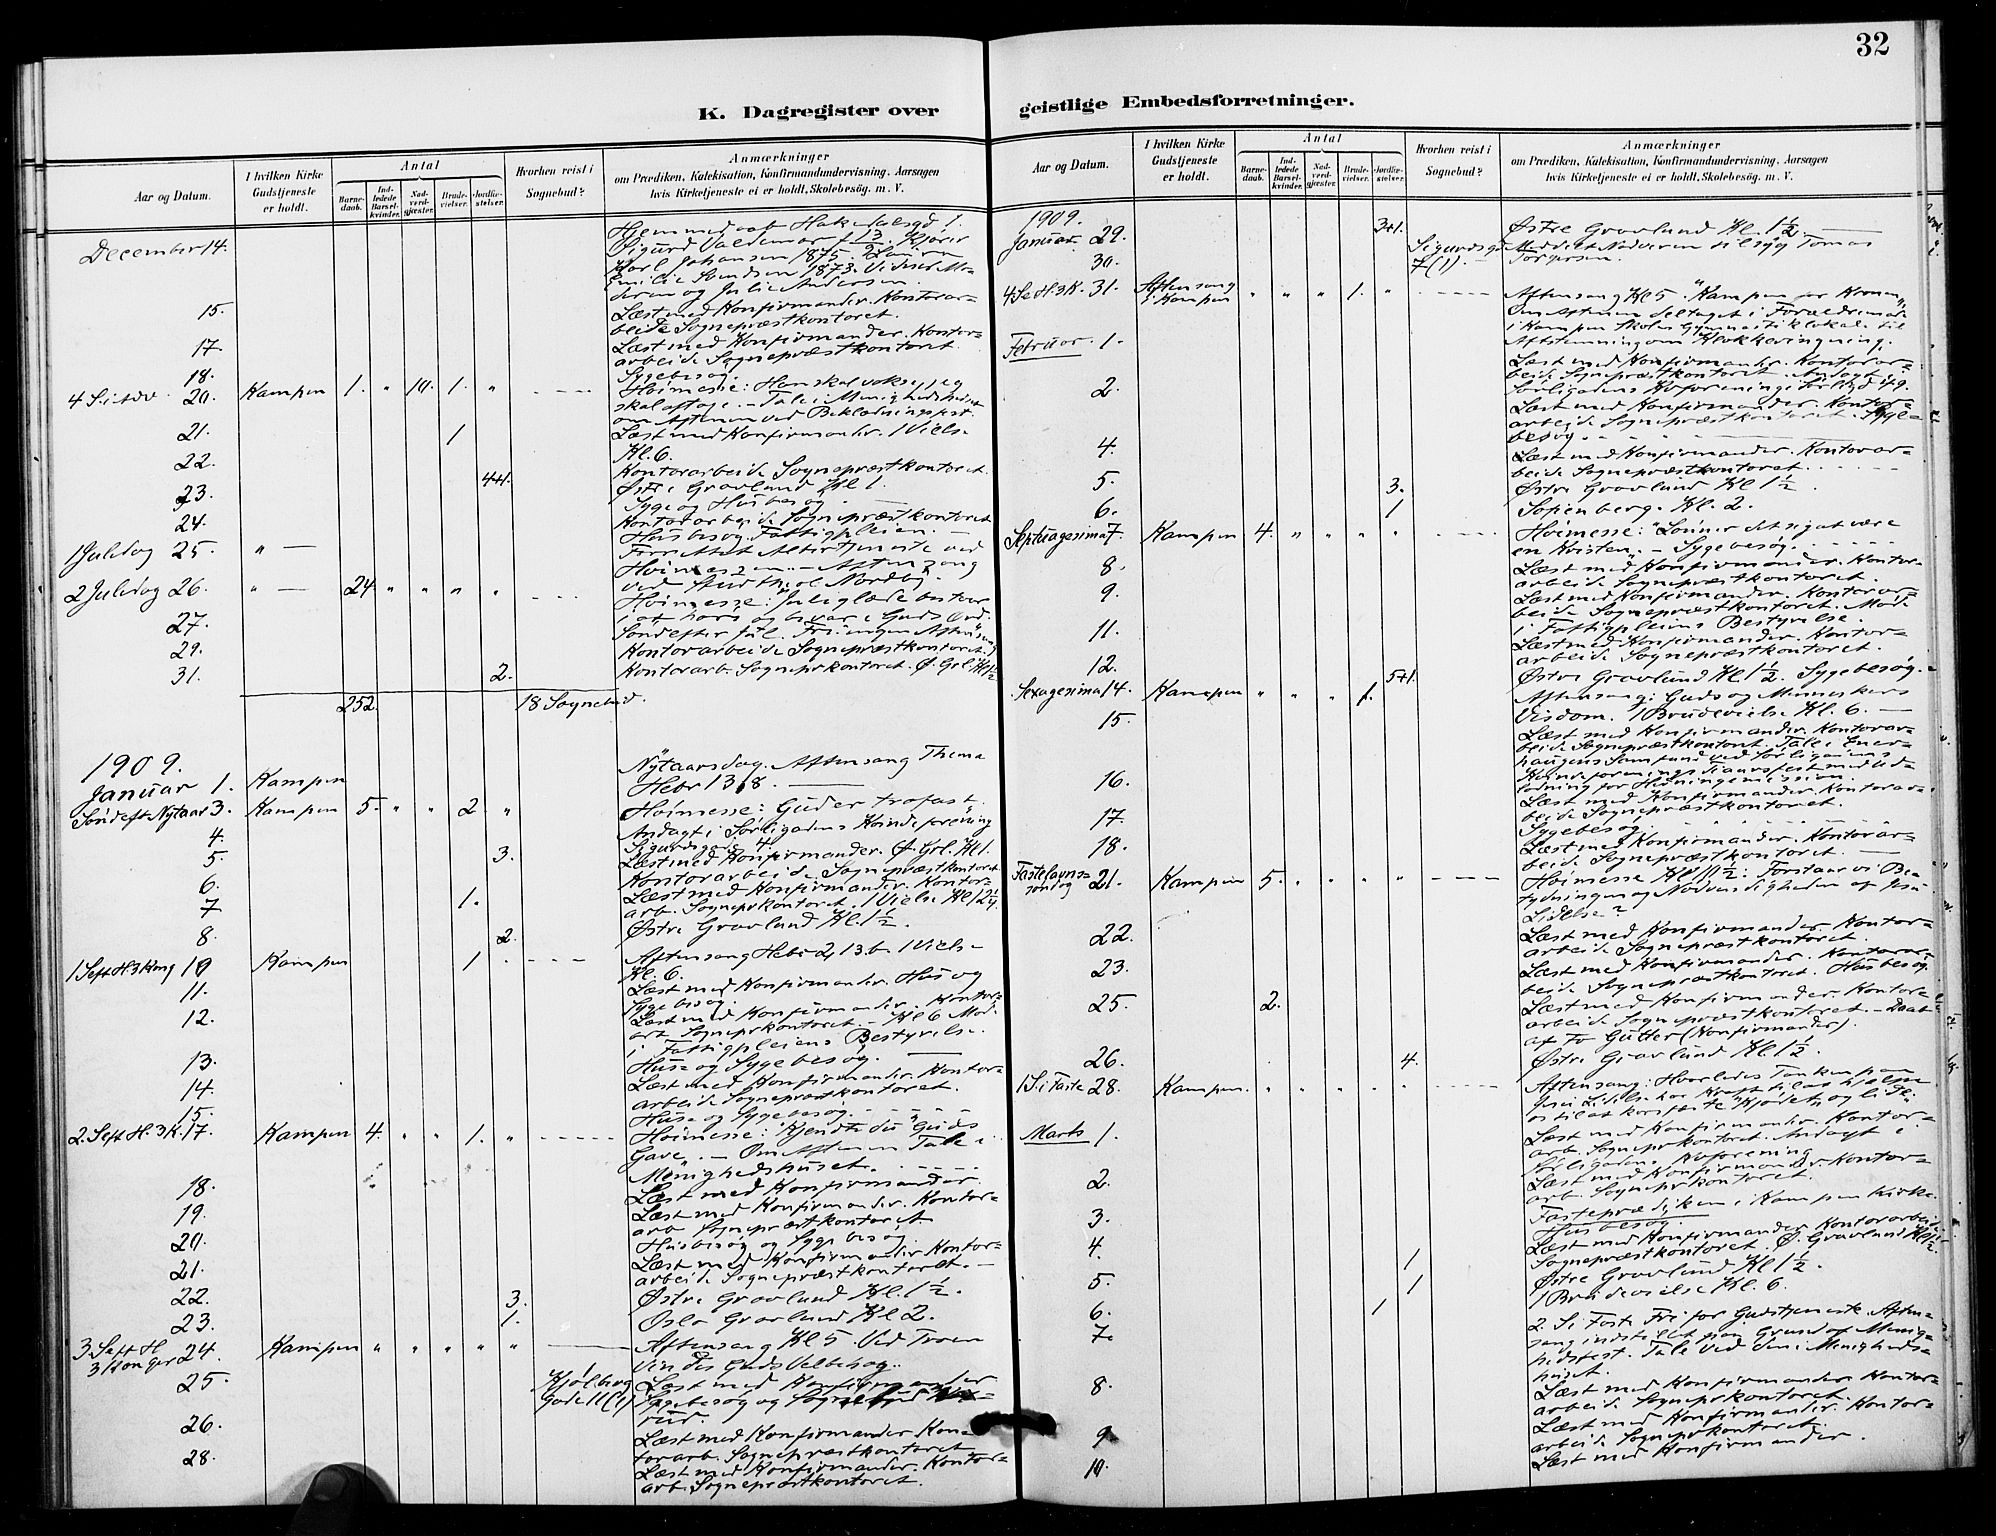 32
K. Dagregister over
geistlige Embedsforretninger.
Aar og Datum.
I hvilken Kirke
Gudstjeneste
er holdt.
Antal
Barne-
daab.
Ind-
ledede
Barsel-
kvinder.
Nad-
verd-
gjæster.
Brude-
vielser.
Jordfæ-
stelser.
Hvorhen reist i
Sognebud?
Anmærkninger
om Prædiken, Katekisation, Konfirmandundervisning, Aarsagen
hvis Kirketjeneste ei er holdt, Skolebesøg. m. V.
December 14.
Karl Johansen 1875
Emilie 1873.
15. Læst med Konfirmander. Kontorar-
beide Sognepræstkontoret.
17. Læst med Konfirmander. Kontor-
arbeide Sognepræstkontoret.
18. Sygebesøg.
4 S. i Adv. 20. Kampen 1. " 10. 1. " Høimesse: Han skal vokse, jeg
skal aftage. – Tale i Menighedshuset
om Aftenen ved Beklædningsfest.
21. 1 Læst med Konfirmander. 1 Vielse
Kl. 6.
22. Kontorarbeide Sognepræstkontoret.
23. 4+1. Østre Gravlund Kl. 1.
Syge og Husbesøg.
24. Kontorarbeide Sognepræstkontoret
Husbesøg. Fattigpleien.
1 Juledag 25. " — Forrettet Altertjeneste ved
Høimessen. – Aftensang
2 Juledag 26. " — 24. " " " " Høimesse: Juleglæde
27. Sønd efter Jul. Fri
29. Kontorarbeide Sognepræstkontoret.
31. 2. Kontorarb. Sogneprkontoret. Ø. Grl. Kl 1½
252. 18 Sognebud.
1909.
Januar 1. Kampen Nytaarsdag. Aftensang Thema
Hebr 13,8.
Sønd eft Nytaar 3. Kampen 5. " " 2. " Høimesse: Gud er trofast.
Andagt i Sørligadens Kvindeforening
4. Sigurdsgade 4.
5. 3. Læst med Konfirmander. Ø. Grl. Kl 1.
Kontorarbeide Sognepræstkontoret
6. Læst med Konfirmander. Kontor-
7 1. arb. Sogneprkontoret. 1 Vielse Kl 12¼.
8. 2. Østre Gravlund Kl. 1½.
1 S eft H. 3 Kong 10 Kampen 1 Aftensang Hebr 2, 13 b. 1 Vielse
Kl. 6.
11. Læst med Konfirmander. Hus og
Sygebesøg.
12. Læst med Konfirmander. Kontor-
arb. Sogneprkontoret. – Kl 6 Møde
i Fattigpleiens Bestyrelse.
13. Hus- og Sygebesøg.
14. Læst med Konfirmander. Kontor-
arbeide Sognepræstkontoret.
15. Hus- og Sygebesøg.
2. S eft H. 3 K. 17. Kampen 4. " " 1. " Høimesse: "Kjendte du Guds
Gave". – Om Aftenen Tale i
Menighedshuset.
18. Læst med Konfirmander.
19. Læst med Konfirmander. Kontor-
arb. Sognepræstkontoret
20. Husbesøg og Sygebesøg.
21. Læst med Konfirmander Kontor-
arbeide Sognepræstkontoret. –
22. 3. Østre Gravlund Kl. 1½.
23. 1. Oslo Gravlund Kl 2.
3 S eft H.
3 Konger 24. Kampen " " " " " Aftensang Kl 5 Ved Troen
vindes Guds Velbehag.
25. Kjølberg
Gade 11 (1) Læst med Konfirmander
Sygebesøg og
26. Læst med Konfirmander Kon-
torarb. Sognepræstkontoret
28. Læst med Konfirmander. Kontor-
arb. Sognepræstkontoret.
Aar og Datum.
I hvilken Kirke
Gudstjeneste
er holdt.
Antal
Barne-
daab.
Ind-
ledede
Barsel-
kvinder.
Nad-
verd-
gjæster.
Brude-
vielser.
Jordfæ-
stelser.
Hvorhen reist i
Sognebud?
Anmærkninger
om Prædiken, Katekisation, Konfirmandundervisning, Aarsagen
hvis Kirketjeneste ei er holdt, Skolebesøg. m. V.
1909.
Januar 29. 3+1. Østre Gravlund Kl. 1½
30. Sigurdsg.
7 (1). Meddelt Nadveren til syg Tomas
Torgersen.
4 S e H. 3 K. 31. Aftensang
i Kampen " " " 1. " Aftensang Kl 5
Om Aftenen deltaget i Forældremøde
i Kampen Skoles Gymnastiklokale til
Afstemning om Klokkeringning.
Februar 1. Læst med Konfirmander. Kontorar-
beide Sognepræstkontoret. Andagt i
2. Læst med Konfirmander. Kontor-
arbeide Sognepræstkontoret. Syge-
besøg.
4. Læst med Konfirmander. Kontorar-
beide Sognepræstkontoret.
5. 3. Østre Gravlund Kl 1½.
6. 1 Sofienberg. Kl. 2.
Septuagesima 7. Kampen 4. " " " " Høimesse: "Lønner det sig at være
en Kristen". – Sygebesøg.
8. Læst med Konfirmander. Kontor-
arbeide Sognepræstkontoret.
9. Læst med Konfirmander. Kontorar-
beide Sognepræstkontoret. Møde
i Fattigpleiens Bestyrelse.
11. Læst med Konfirmander. Kontor-
arbeide Sognepræstkontoret.
12. 5+1. Østre Gravlund Kl 1½. Sygebesøg.
Sexagesima 14. Kampen " " " 1. Aftensang: Guds og Menneskers
Visdom. 1 Brudevielse Kl. 6. –
15. Læst med Konfirmander. Kontorar-
beide Sognepræstkontoret. Tale i Ener-
haugens Samfund ved Sørligadens
Kvindeforenings
for Hedningemission.
16. Læst med Konfirmander. Kontorar-
beide Sognepræstkontoret.
17. Sygebesøg
18. Læst med Konfirmander. Kontorar-
beide Sognepræstkontoret.
Fastelavns-
søndag 21. Kampen 5. " " " " Høimesse Kl 11½: Forstaar vi Be-
tydningen og Nødvendigheden af Jesu
Lidelse?
22. Læst med Konfirmander. Kontor-
arbeide Sognepræstkontoret.
23. Læst med Konfirmander. Kontorar-
beide Sognepræstkontoret. Husbesøg.
25. 2. Læst med Konfirmander. Kontor-
arbeide Sognepræstkontoret. – Daab
af to Gutter (Konfirmander).
26. 4. Østre Gravlund Kl 1½.
1 S. i Faste 28. Kampen. " " " " " Aftensang: Hvorledes Tanken paa
Jesu Lidelse har Kraft til at hjælpe
os til at korsfæste "Kjødet"
Marts 1. Læst med Konfirmander. Kontor-
arb. Sogneprkontoret. Andagt i
2. Læst med Konfirmander. Kontor-
arb. Sogneprkontoret.
Fasteprædiken i Kampen Kirke.
3. Husbesøg.
4. 1 Læst med Konfirmander. Kontorarbeide
Sognepræstkontoret. Ø. Gravlund Kl 1½.
5. 1 Østre Gravlund Kl 1½.
6. 1 1 Brudevielse Kl. 6.
7. 2. S i Faste Fri for Gudstjeneste. Aften-
sang indstillet paa Grund af Menig-
hedsfest. Tale ved den i Menigheds-
huset.
8. Læst med Konfirmander Kontor-
arbeide Sogneprkontoret.
9 Læst med Konfirmander. Kontor-
arbeide Sognepræstkontoret.
10. Læst med Konfirmander.